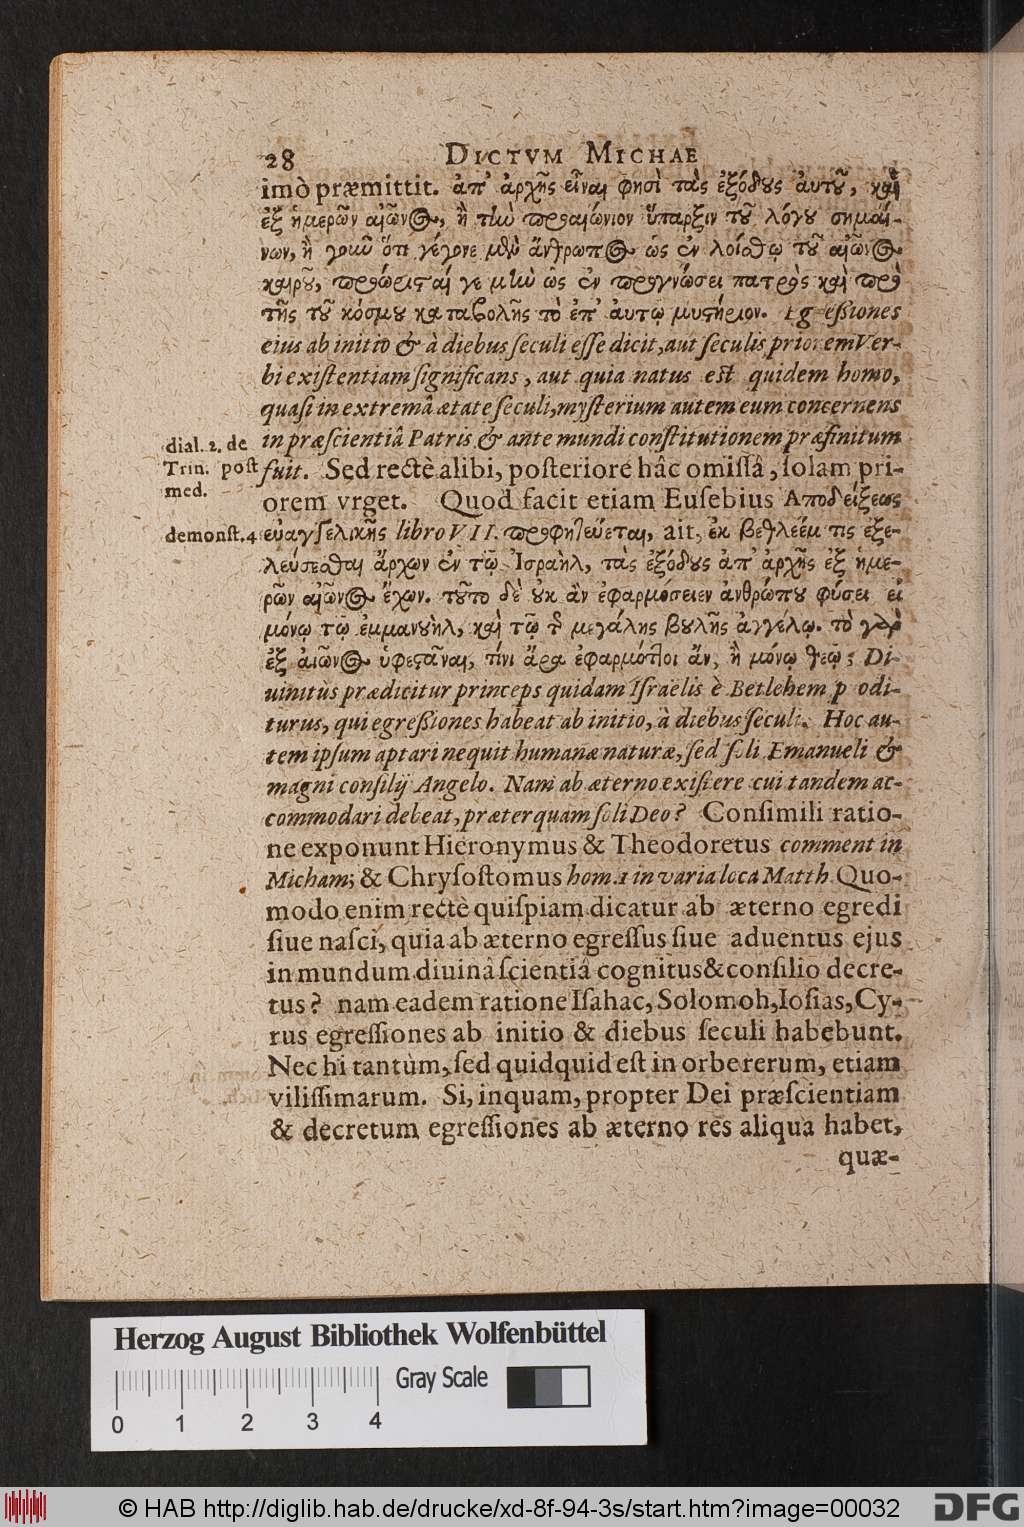 28 DICTVM MICHAE
imò præmittit. ἀπ' ἀρχῆς εἶναι φησὶ τὰς ἐξόδους ἀυτοῦ, καὶ
ἐξ ἡμερῶν αἰῶνος, ἢ τὴν προαιώνιον ὕπαρξιν τοῦ λόγου σημαί-
νων, ἢ γοῦν ὅτι γέγονε μὲν ἄνθρωπος ὡς ἐν λοίσθῳ τοῦ αἰῶνος
καιροῦ, προώρισται γε μὴν ὡς ἐν προγνώσει πατρὸς καὶ πρὸ
τῆς τοῦ κόσμου καταβολῆς τὸ ἐπ' ἀυτῷ μυστήριον. Egeſsiones
eius ab initio & à diebus ſeculi eſſe dicit, aut ſeculis priorem Ver-
bi exiſtentiam ſignificans, aut quia natus eſt quidem homo,
quaſi in extremâ ætate ſeculi, myſterium autem eum concernens
dial. 2. de in præſcientiâ Patris & ante mundi conſtitutionem præfinitum
Trin. poſt fuit. Sed rectè alibi, poſteriore hâc omiſſâ, ſolam pri-
med.
orem vrget. Quod facit etiam Euſebius Αποδείξεως
demonſt. 4 ἐυαγγελικῆς libro VII. προφητεύεται, ait, ἐκ βεθλεὲμ τις ἐξε-
λεύσεσθαι ἄρχων ἐν τῷ Ἰσραὴλ, τὰς ἐξόδους ἀπ' ἀρχῆς ἐξ ἡμε-
ρῶν αἰῶνος ἔχων. τοῦτο δὲ οὐκ ἂν ἐφαρμόσειεν ἀνθρώπου φύσει εἰ
μόνῳ τῷ ἐμμανουὴλ, καὶ τῷ τῆς μεγάλης βουλῆς ἀγγέλῳ. τὸ γὰρ
ἐξ αἰῶνος ὑφεστᾶναι, τίνι ἄρα ἐφαρμόττοι ἂν, ἢ μόνῳ θεῷ; Di-
uinitùs prædicitur princeps quidam Iſraëlis è Betlehem p odi-
turus, qui egreſsiones habeat ab initio, à diebus ſeculi. Hoc au-
tem ipſum aptari nequit humanæ naturæ, ſed ſoli Emanueli &
magni conſilij Angelo. Nam ab æterno exiſtere cui tandem ac-
commodari debeat, præterquam ſoli Deo? Conſimili ratio-
ne exponunt Hieronymus & Theodoretus comment in
Micham; & Chryſoſtomus hom. 1 in varia loca Matth. Quo-
modo enim rectè quiſpiam dicatur ab æterno egredi
ſiue naſci, quia ab æterno egreſſus ſiue aduentus ejus
in mundum diuinâ ſcientiâ cognitus & conſilio decre-
tus? nam eadem ratione Iſahac, Solomoh, Ioſias, Cy-
rus egreſſiones ab initio & diebus ſeculi habebunt.
Nec hi tantùm, ſed quidquid eſt in orbe rerum, etiam
viliſſimarum. Si, inquam, propter Dei præſcientiam
& decretum egreſſiones ab æterno res aliqua habet,
quæ-
Herzog August Bibliothek Wolfenbüttel
Gray Scale
0 1 2 3 4
© HAB http://diglib.hab.de/drucke/xd-8f-94-3s/start.htm?image=00032 DFG